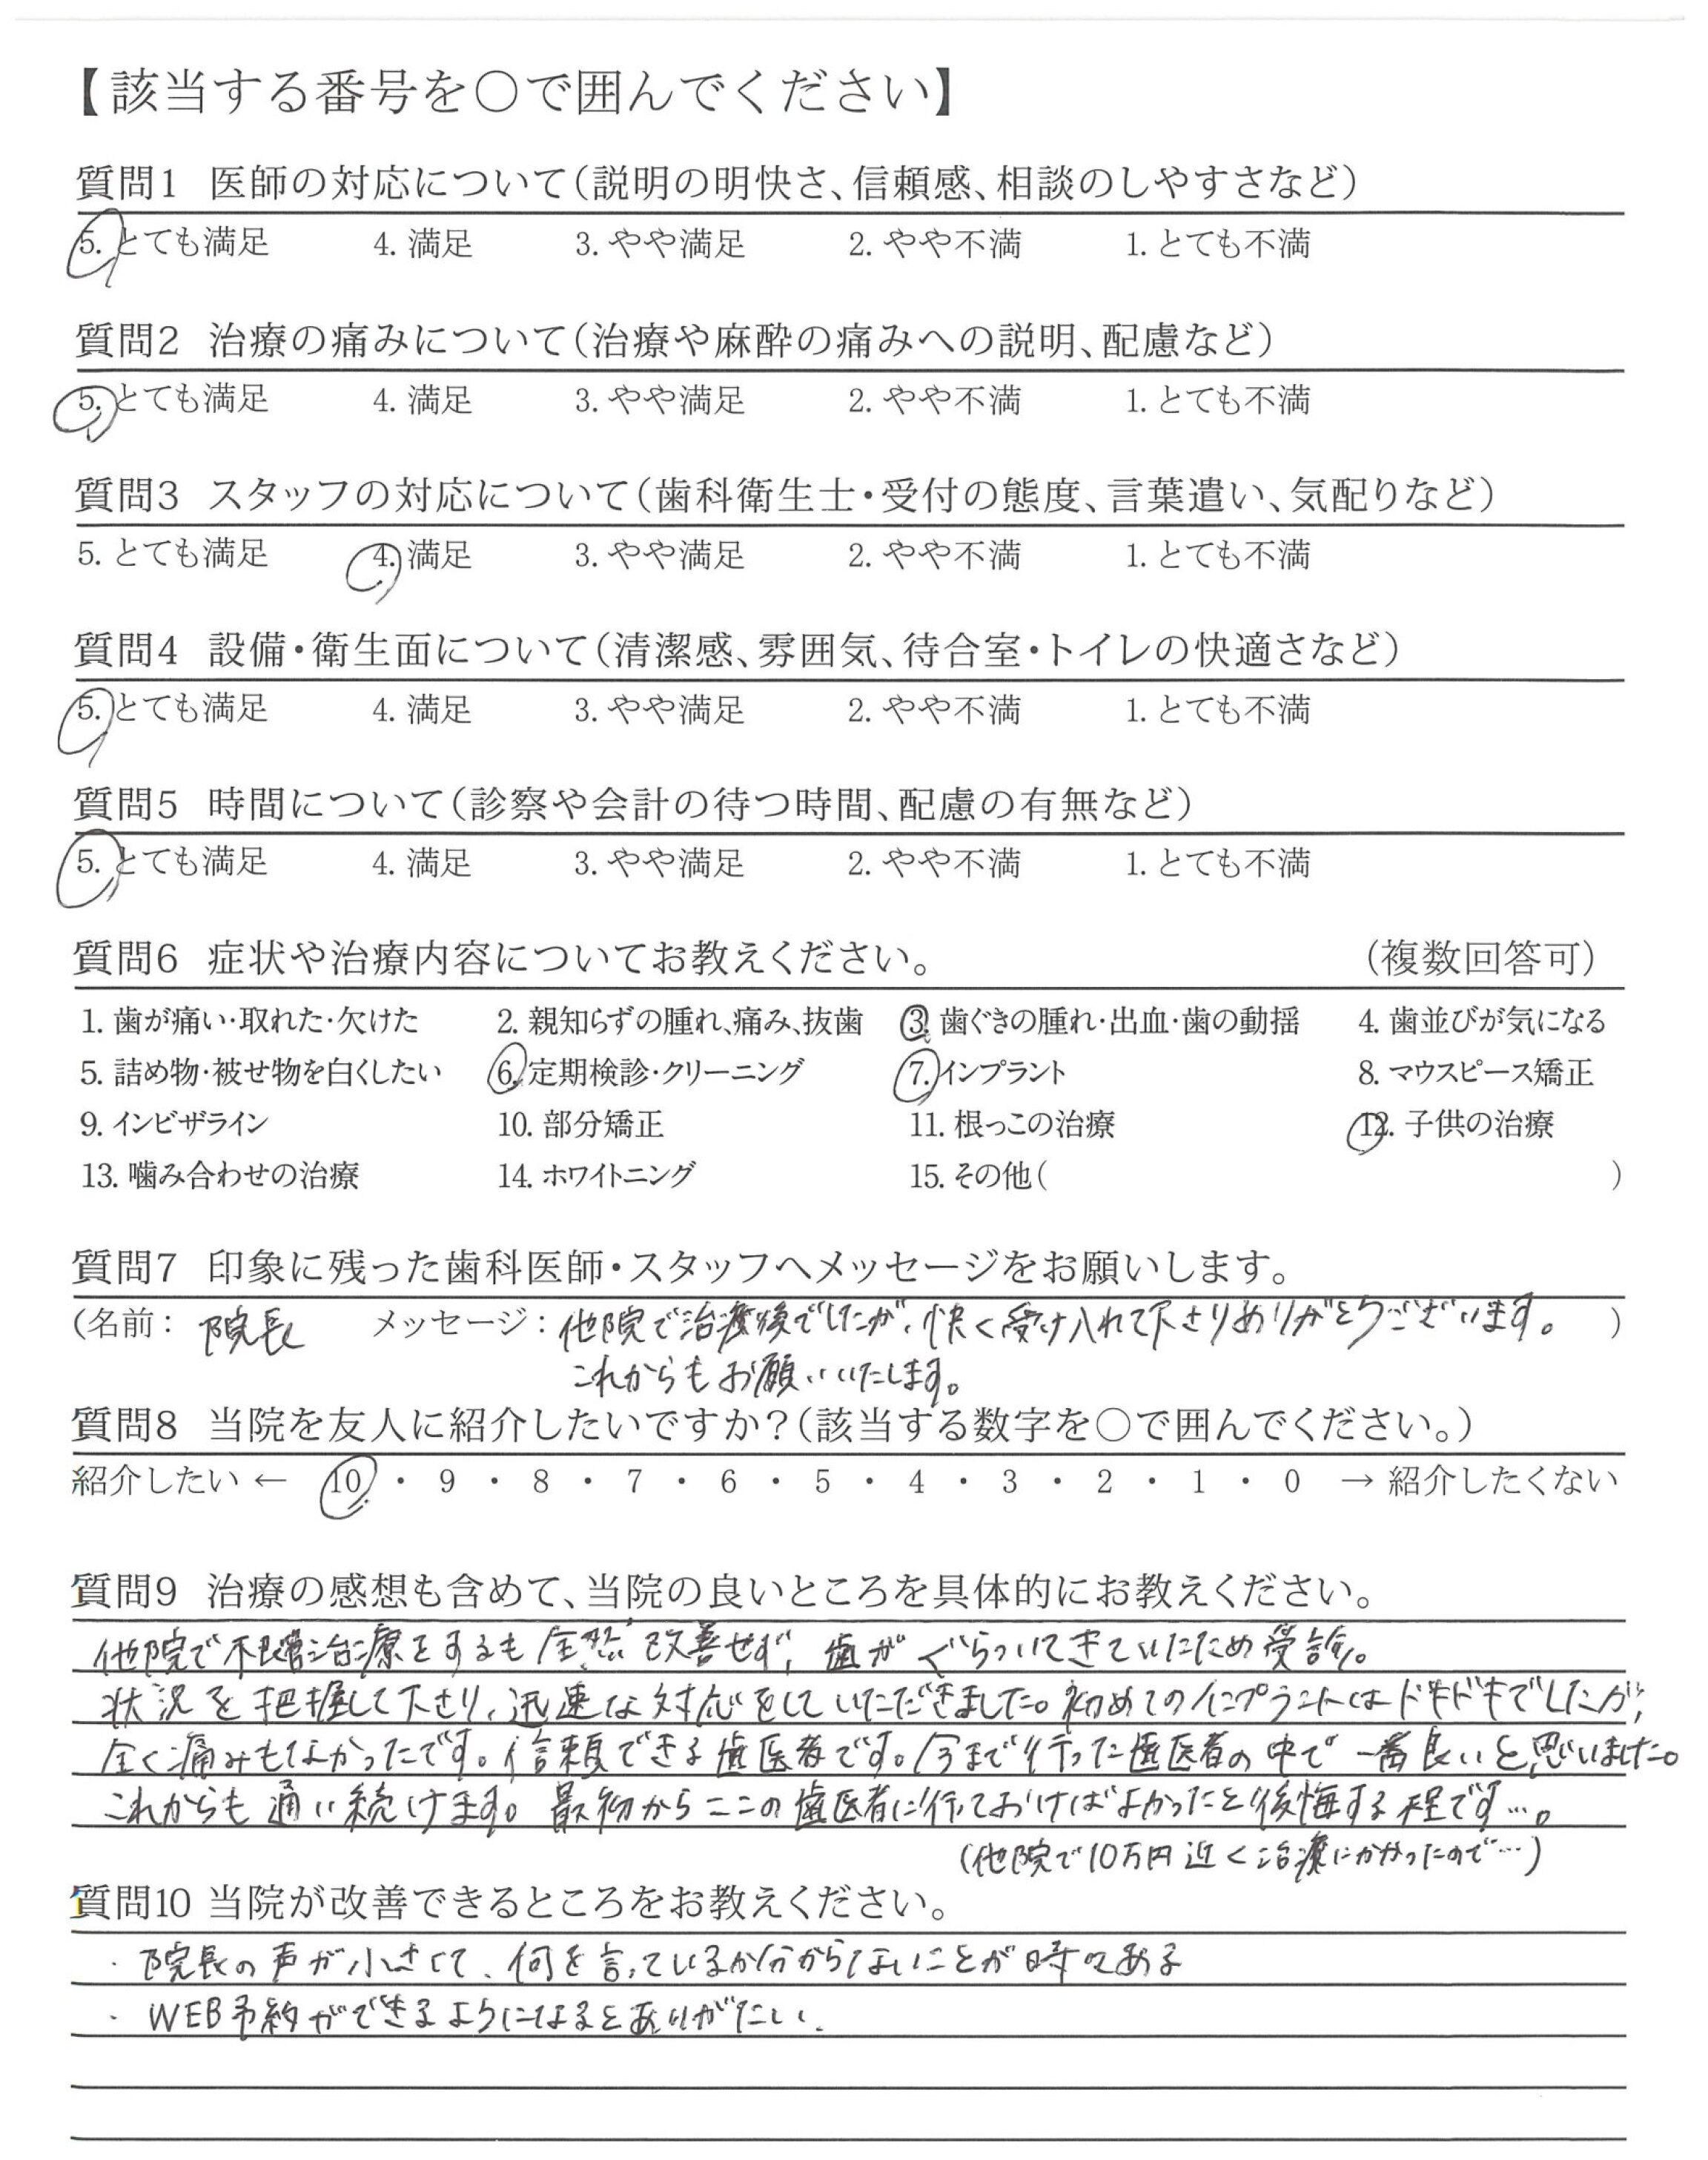 【該当する番号を○で囲んでください】
質問1 医師の対応について(説明の明快さ、信頼感、相談のしやすさなど)
5. とても満足 4. 満足 3. やや満足 2. やや不満 1. とても不満
質問2 治療の痛みについて(治療や麻酔の痛みへの説明、配慮など)
5. とても満足 4. 満足 3. やや満足 2. やや不満 1. とても不満
質問3 スタッフの対応について(歯科衛生士・受付の態度、言葉遣い、気配りなど)
5. とても満足 4. 満足 3. やや満足 2. やや不満 1. とても不満
質問4 設備・衛生面について(清潔感、雰囲気、待合室・トイレの快適さなど)
5. とても満足 4. 満足 3. やや満足 2. やや不満 1. とても不満
質問5 時間について(診察や会計の待つ時間、配慮の有無など)
5. とても満足 4. 満足 3. やや満足 2. やや不満 1. とても不満
質問6 症状や治療内容についてお教えください。 (複数回答可)
1. 歯が痛い・取れた・欠けた 2. 親知らずの腫れ、痛み、抜歯 3. 歯ぐきの腫れ・出血・歯の動揺 4. 歯並びが気になる
5. 詰め物・被せ物を白くしたい 6. 定期検診・クリーニング 7. インプラント 8. マウスピース矯正
9. インビザライン 10. 部分矯正 11. 根っこの治療 12. 子供の治療
13. 噛み合わせの治療 14. ホワイトニング 15. その他( )
質問7 印象に残った歯科医師・スタッフへメッセージをお願いします。
(名前: 院長 メッセージ: 他院で治療後でしたが、快く受け入れて下さりありがとうございます。 )
これからもお願いいたします。
質問8 当院を友人に紹介したいですか?(該当する数字を○で囲んでください。)
紹介したい ← 10 ・ 9 ・ 8 ・ 7 ・ 6 ・ 5 ・ 4 ・ 3 ・ 2 ・ 1 ・ 0 → 紹介したくない
質問9 治療の感想も含めて、当院の良いところを具体的にお教えください。
他院で根管治療をするも全然改善せず、歯がぐらついてきていたため受診。
状況を把握して下さり、迅速な対応をしていただきました。初めてのインプラントはドキドキでしたが、
全く痛みもなかったです。信頼できる歯医者です。今まで行った歯医者の中で一番良いと思いました。
これからも通い続けます。最初からここの歯医者に行っておけばよかったと後悔する程です…。
(他院で10万円近く治療にかかったので…)
質問10 当院が改善できるところをお教えください。
・院長の声が小さくて、何を言っているか分からないことが時々ある
・WEB予約ができるようになるとありがたい。